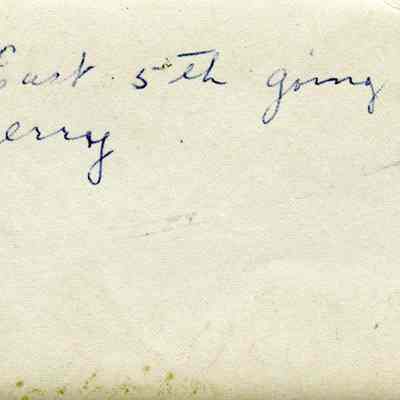 East 5th going
erry